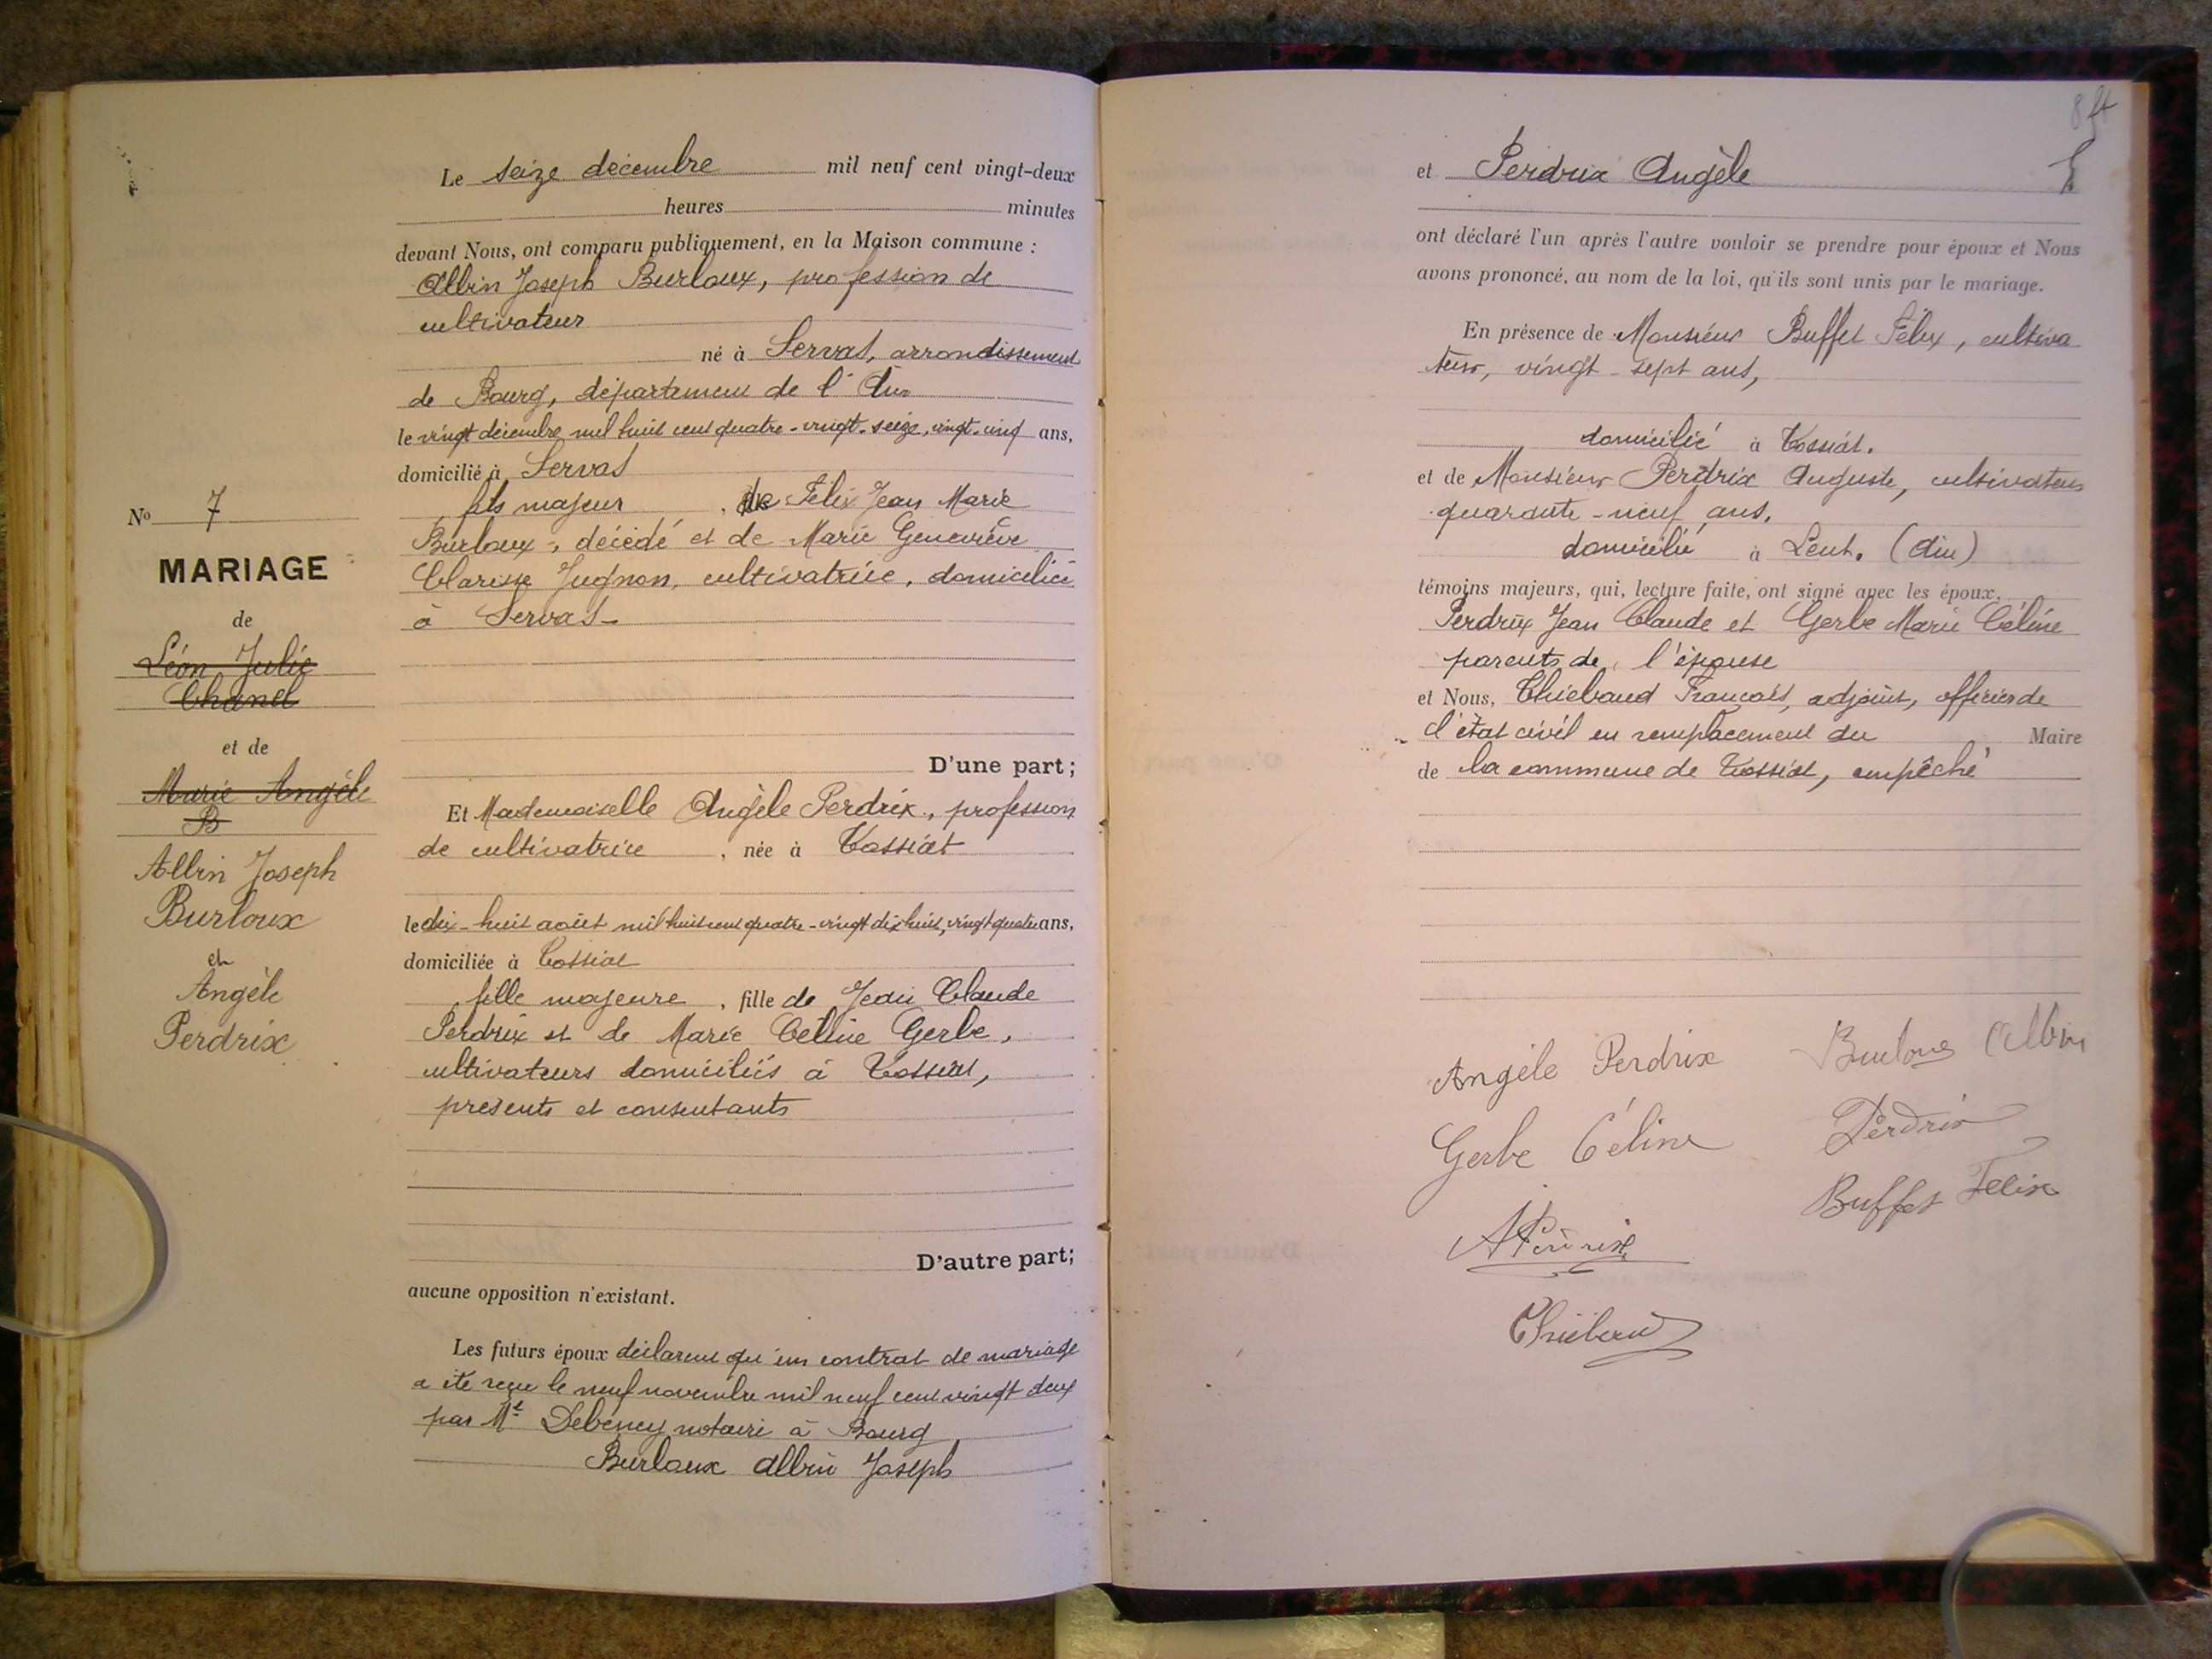 Le seize décembre mil neuf cent vingt-deux
heures minutes
devant Nous, ont comparu publiquement, en la Maison commune :
Albin Joseph Burloux, profession de
cultivateur
né à Servas, arrondissement
de Bourg, département de l'Ain
le vingt décembre mil huit cent quatre-vingt-seize, vingt-cinq ans,
domicilié à Servas
fils majeur, de Félix Jean Marie
Burloux, décédé et de Marie Geneviève
Clarisse Jugnon, cultivatrice, domiciliée
à Servas
D'une part ;
Et Mademoiselle Angèle Perdrix, profession
de cultivatrice, née à Tossiat
le dix-huit août mil huit cent quatre-vingt dix huit, vingt quatre ans,
domiciliée à Tossiat
fille majeure, fille de Jean Claude
Perdrix et de Marie Céline Gerbe,
cultivateurs domiciliés à Tossiat,
présents et consentants
D'autre part ;
aucune opposition n'existant.
Les futurs époux déclarent qu'un contrat de mariage
a été reçu le neuf novembre mil neuf cent vingt deux
par Me Debeney notaire à Bourg
Burloux Albin Joseph
No 7
MARIAGE
de
Léon Julie
Chanel
et de
Marie Angèle
B
Albin Joseph
Burloux
et
Angèle
Perdrix
et Perdrix Angèle
ont déclaré l'un après l'autre vouloir se prendre pour époux et Nous
avons prononcé, au nom de la loi, qu'ils sont unis par le mariage.
En présence de Monsieur Buffet Félix, cultiva
teur, vingt-sept ans,
domicilié à Tossiat.
et de Monsieur Perdrix Auguste, cultivateur
quarante-neuf ans,
domicilié à Lent. (Ain)
témoins majeurs, qui, lecture faite, ont signé avec les époux,
Perdrix Jean Claude et Gerbe Marie Céline
parents de l'épouse
et Nous, Thiébaud François, adjoint, officier de
l'état civil en remplacement du Maire
de la commune de Tossiat, empêché
Angèle Perdrix Burloux Albin
Gerbe Céline Perdrix
Buffet Felix
A Perdrix
Thiébaud